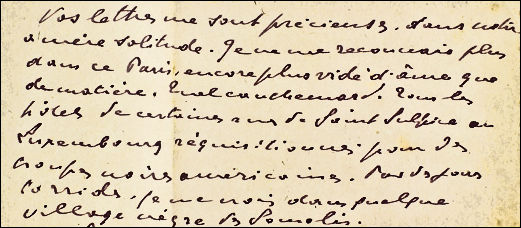 Vos lettres me sont précieuses, dans notre
amère solitude. Je ne me reconnais plus
dans ce Paris, encore plus vidé d'âme que
de matière. Quel cauchemard. Tous les
hôtels de certaines rues de Saint Sulpice au
Luxembourg réquisitionnés pour des
troupes noires américaines. Par des jours
torrides, je me crois dans quelque
village nègre des Somalis.